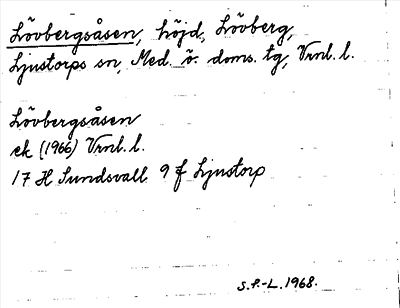 Lövbergsåsen, höjd, Lövberg,
Ljustorps sn, Med. ö. doms. tg, Vrnl. l.
Lövbergsåsen
ek (1966) Vrnl. l.
17 H Sundsvall 9 f Ljustorp
S.P.-L. 1968.